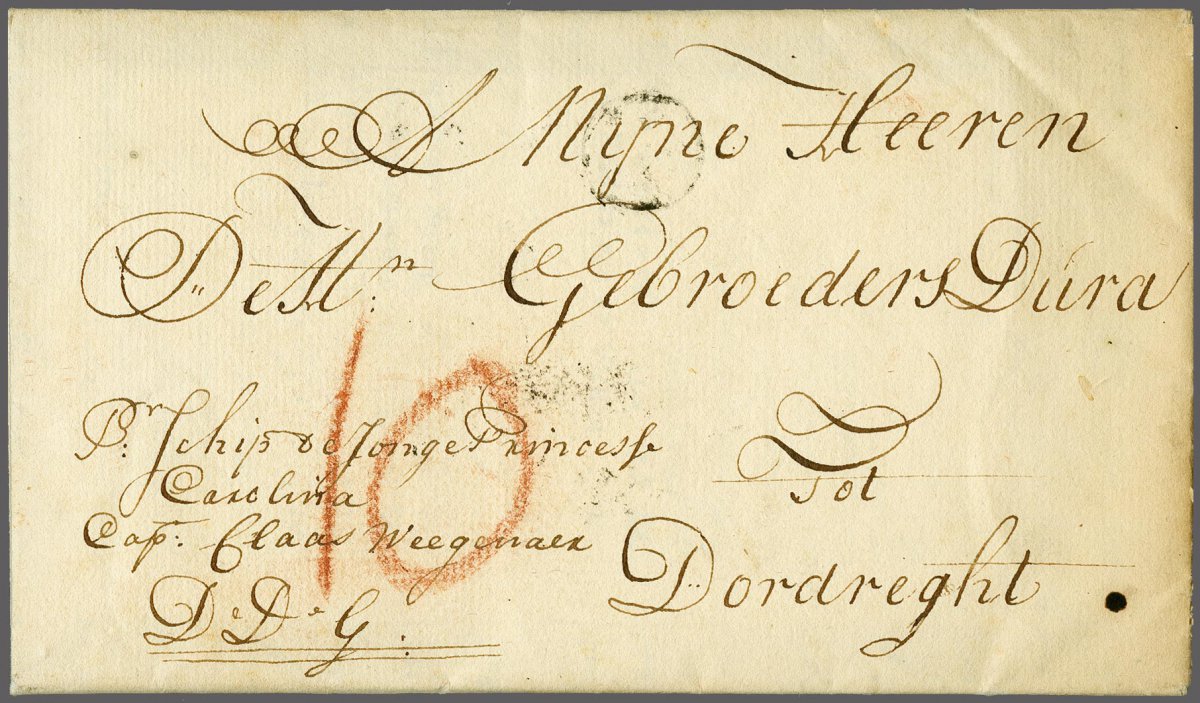 A Mijne Heeren
De Hrn: Gebroeders Dura
10
Pr: Schip de Jonge Princesse
Carolina
Cap: Claas Weegenaer
D. D. G.
Tot
Dordreght